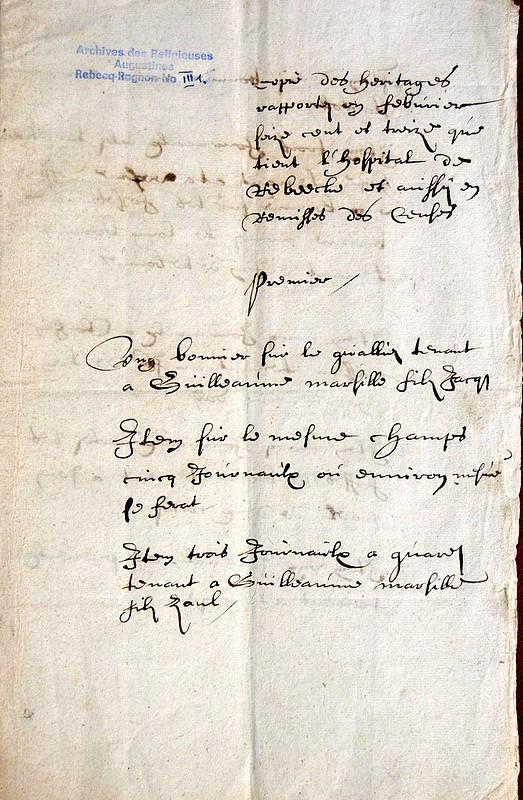 Archives des Religieuses
Augustines
Rebecq-Rognon No III 1.
Copie des heritages
rapportez en febvrier
seize cent et treize que
tient l'hospital de
Rebecche et aussÿ en
Remisses des Censes
Premier
Ung bonnier sur le tenant
a Guilleaume marsille filz Jacqs
Item sur le mesme champs
cincq Journaulx ou environ mesure
se ferat
Item trois Journaulx a
tenant a Guilleaume marsille
filz